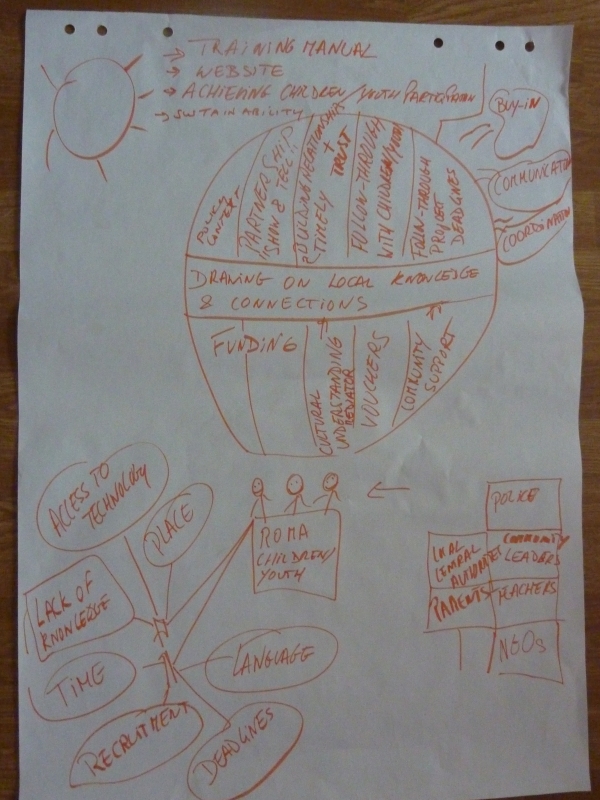 → TRAINING MANUAL
→ WEBSITE
→ ACHIEVING CHILDREN/YOUTH PARTICIPATION
→ SUSTAINABILITY
BUY-IN
COMMUNICATION
COORDINATION
POLICY
CONTEXT
PARTNERSHIP
"SHOW & TELL"
BUILDING RELATIONSHIPS
+ TRUST
TIMELY
FOLLOW-THROUGH
WITH CHILDREN/YOUTH
FOLLOW-THROUGH
PROJECT
DEADLINES
DRAWING ON LOCAL KNOWLEDGE
& CONNECTIONS
FUNDING
CULTURAL
UNDERSTANDING
MEDIATOR
VOUCHERS
COMMUNITY
SUPPORT
ACCESS TO
TECHNOLOGY
PLACE
LACK OF
KNOWLEDGE
TIME
RECRUITMENT
DEADLINES
LANGUAGE
ROMA
CHILDREN/
YOUTH
POLICE
LOCAL
CENTRAL
AUTHORITIES
COMMUNITY
LEADERS
PARENTS
TEACHERS
NGOs